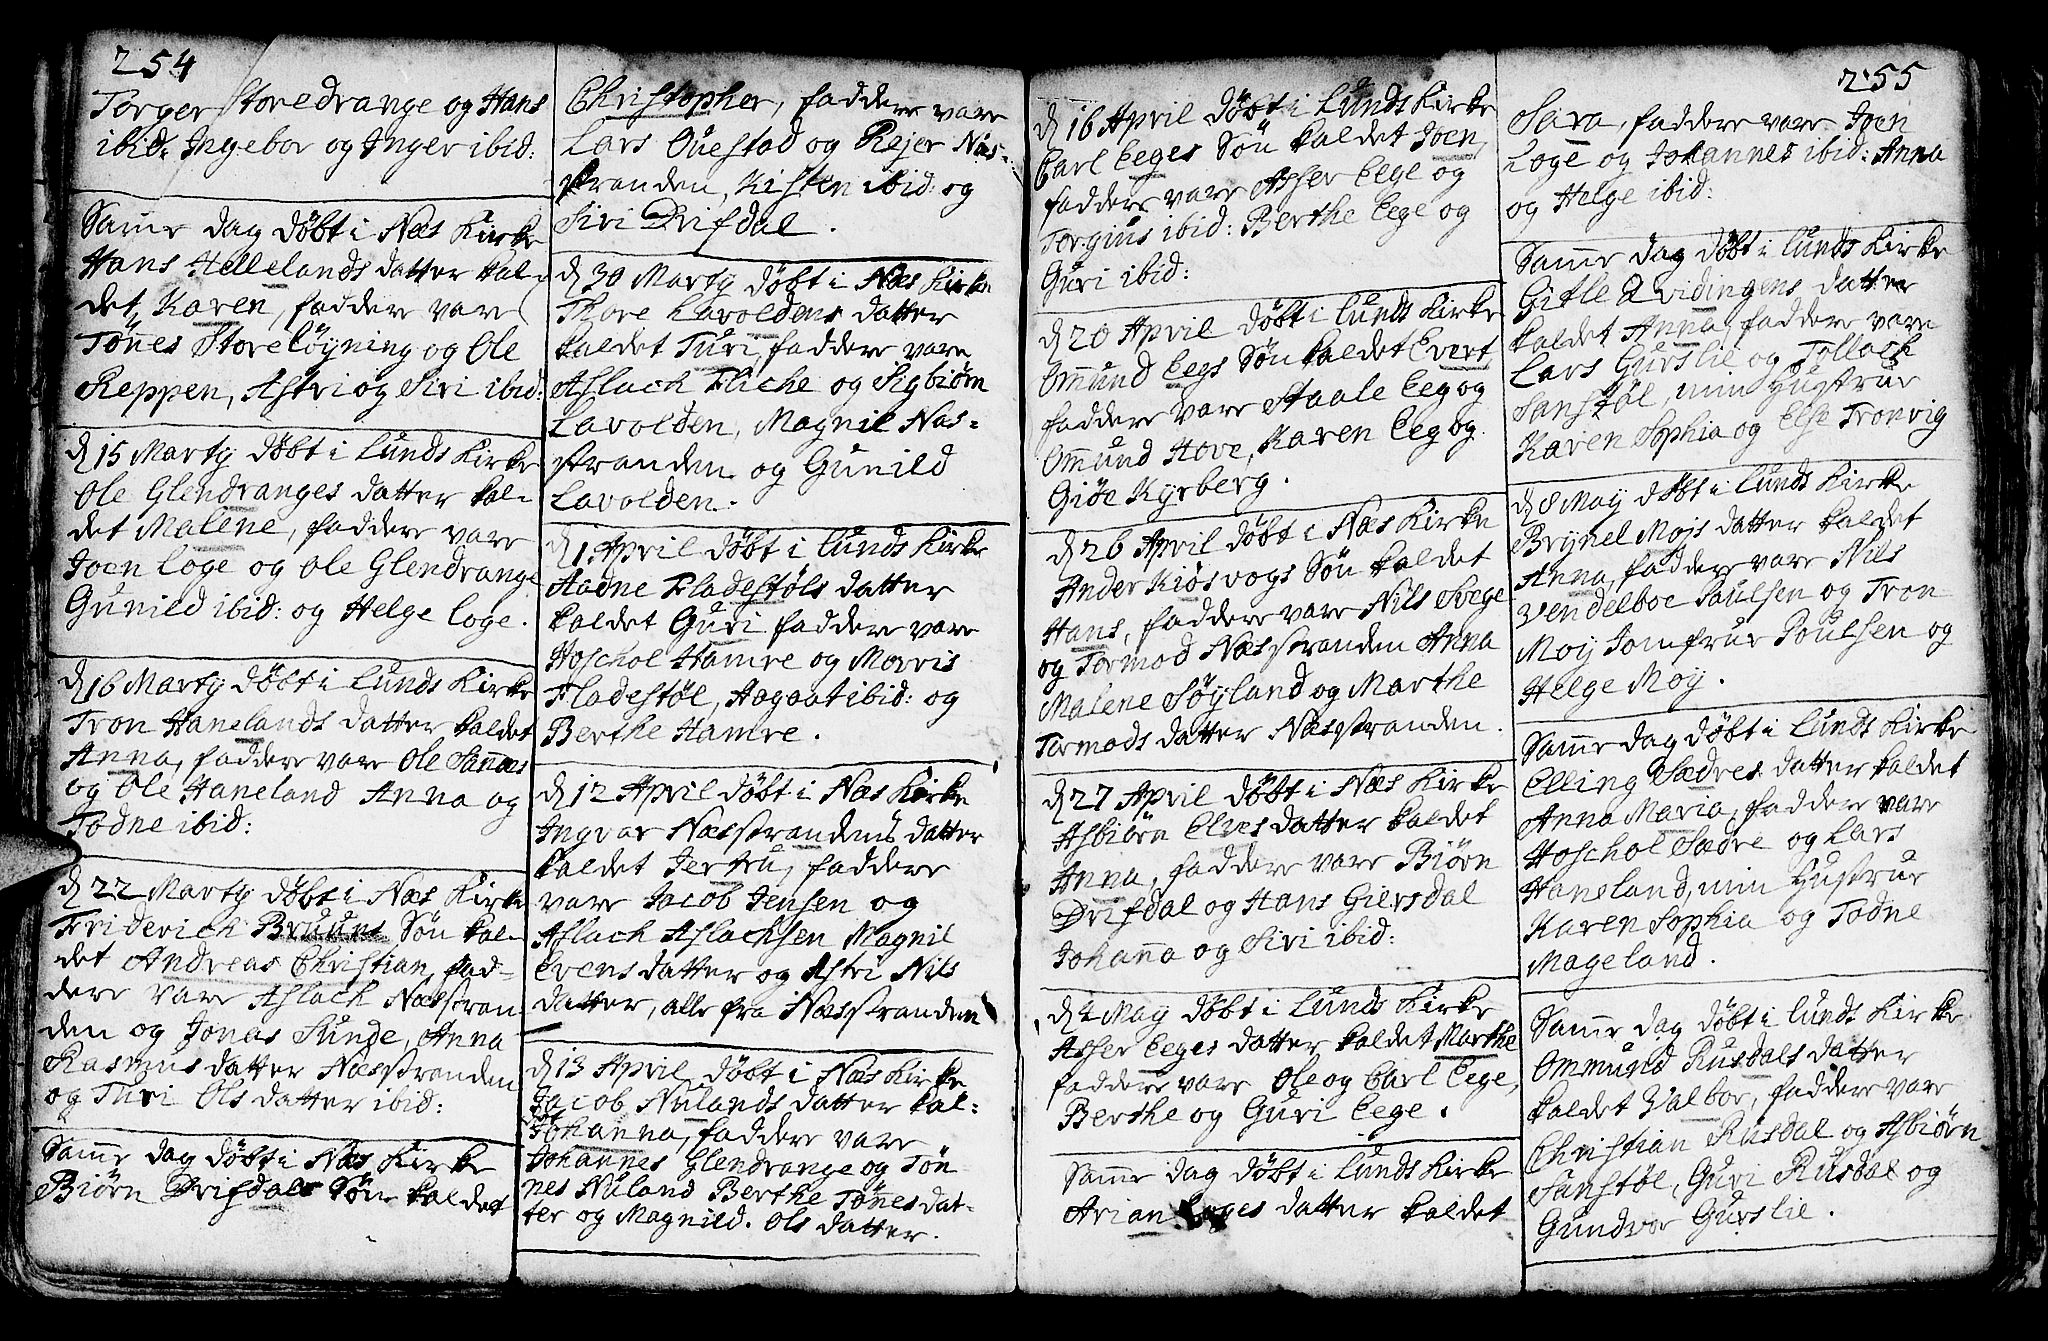 254
Torger Storedrange og Hans
ibid: Ingebor og Inger ibid:
Samme dag döbt i Næs Kirke
Hans Hellelands datter kal-
det Karen, faddere vare
Tönnes Storelöyning og Ole
Reppen, Astri og Siri ibid:
d 15 Marty döbt i Lunds Kirke
Ole Glendranges datter kal-
det Malene, faddere vare
Joen Loge og Ole Glendrange
Gunild ibid: og Helge Loge.
d 16 Marty döbt i Lunds Kirke
Tron Hanelands datter kaldet
Anna, faddere vare Ole Sannæs
og Ole Haneland Anna og
Todne ibid:
d 22 Marty döbt i Næs Kirke
Friderich Bruuns Sön kal-
det Andreas Christian, fad-
dere vare Aslach Næsstran
den og Jonas Sunde, Anna
Rasmus datter Næsstranden
og Turi Ols datter ibid:
Samme dag döbt i Næs Kirke
Biörn Drifdals Sön kaldet
Christopher, faddere vare
Lars Ovestad og Rejer Næs-
stranden, Kisten ibid: og
Siri Drifdal.
d 30 Marty döbt i Næs Kirke
Thore Lavoldens datter
kaldet Turi, faddere vare
Aslach Fliche og Sigbiörn
Lavolden, Magnil Næs-
stranden og Gunild
Lavolden.
d 1 April döbt i Lunds Kirke
Aadne Fladestöls datter
kaldet Guri faddere vare
Hoschol Hamre og Morris
Fladestöl, Aagaat ibid: og
Berthe Hamre.
d 12 April döbt i Næs Kirke
Ingvar Næsstrandens datter
kaldet Jertru, faddere
vare Jacob Jensen og
Aslach Aslachsen Magnil
Evens datter og Astri Nils
datter, alle fra Næsstranden
d 13 April döbt i Næs Kirke
Jacob Nulands datter kal-
det Johanna, faddere vare
Johannes Glendrange og Tön
nes Nuland Berthe Tönnes dat-
ter og Magnild. Ols datter.
255
d 16 April döbt i Lunds Kirke
Carl Eeges Sön kaldet Joen,
faddere vare Asser Eege og
Torgius ibid: Berthe Eege og
Guri ibid:
d 20 April döbt i Lunds Kirke
Ommund Eegs Sön kaldet Evert
faddere vare Staale Eeg og
Ommund Hove, Karen Eeg og
Giöe Kyrberg.
d 26 April döbt i Næs Kirke
Ander Kiösvogs Sön kaldet
Hans, faddere vare Nils Svege
og Tormod Næsstranden Anna
Malene Söyland og Marthe
Tormods datter Næsstranden.
d 27 April döbt i Næs Kirke
Asbiörn Elves datter kaldet
Anna, faddere vare Biörn
Drifdal og Hans Giersdal
Johanna og Siri ibid:
d 4 May döbt i Lunds Kirke
Asser Eeges datter kaldet Marthe
faddere vare Ole og Carl Eege,
Berthe og Guri Eege.
Samme dag döbt i Lunds Kirke
Arian Loges datter kaldet
Sara, faddere vare Joen
Loge og Johannes ibid: Anna
og Helge ibid:
Samme dag döbt i Lunds Kirke
Gitle Qvidingens datter
kaldet Anna, faddere vare
Lars Gurslie og Tollack
Sanstöl, min Hustrue
Karen Sophia og Else Tronvig
d 8 May döbt i Lunds Kirke
Brynel Moys datter kaldet
Anna, faddere vare Nils
Vendelboe Paulsen og Tron
Moy Jomfrue Poulsen og
Helge Moy.
Samme dag döbt i Lunds Kirke
Elling Sædres datter kaldet
Anna Maria, faddere vare
Hoschol Sædre og Lars
Haneland, min Hustrue
Karen Sophia og Todne
Mageland.
Samme dag döbt i Lunds Kirke
Ommund Rusdals datter
kaldet Valbor, faddere vare
Christian Rusdal og Asbiörn
Sunstöl, Guri Rusdal og
Gundvor Gurslie.